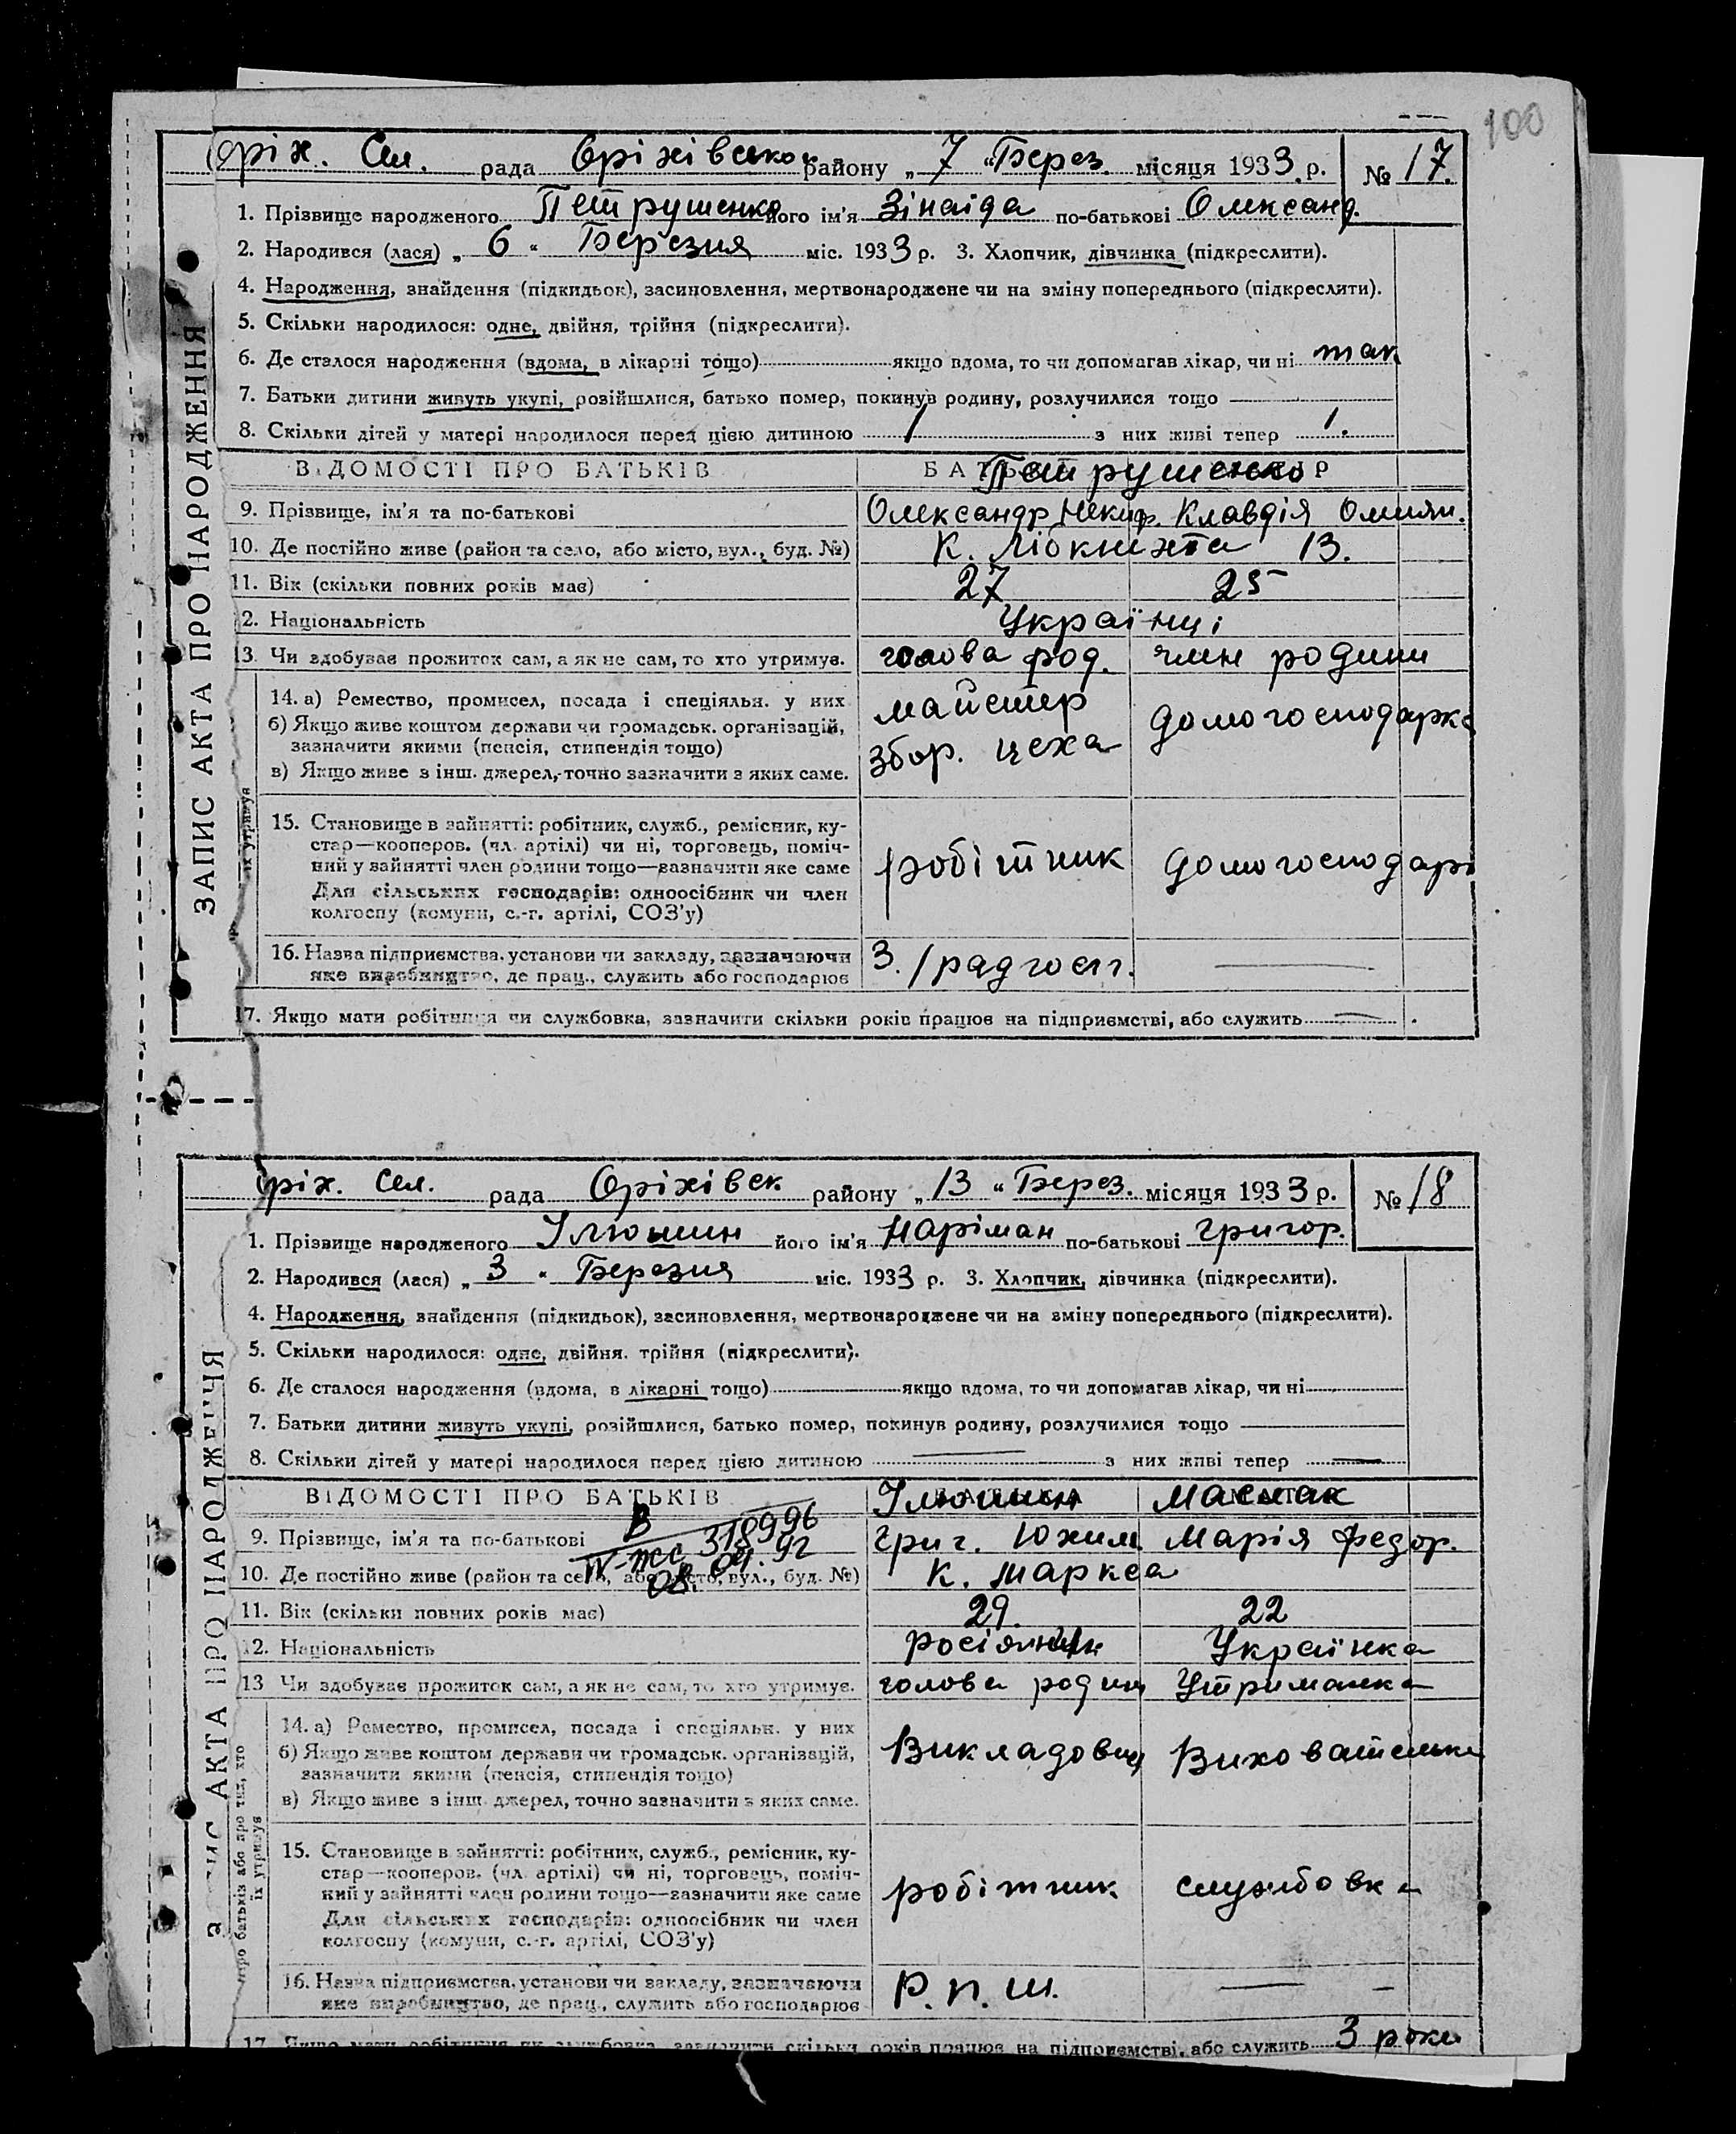 100
Оріх. Сел. рада Оріхівського району „ 7 “ Берез. місяця 1933 р. № 17.
1. Прізвище народженого Петрушенко його ім’я Зінаїда по-батькові Олександ.
2. Народився (лася) „ 6 “ Березня міс. 1933 р. 3. Хлопчик, дівчинка (підкреслити).
4. Народження, знайдення (підкидьок), засиновлення, мертвонароджене чи на зміну попереднього (підкреслити).
5. Скільки народилося: одне, двійня, трійня (підкреслити).
6. Де сталося народження (вдома, в лікарні тощо) якщо вдома, то чи допомагав лікар, чи ні так
7. Батьки дитини живуть укупі, розійшлися, батько помер, покинув родину, розлучилися тощо
8. Скільки дітей у матері народилося перед цією дитиною 1 з них живі тепер 1.
ВІДОМОСТІ ПРО БАТЬКІВ Петрушенко
9. Прізвище, ім’я та по-батькові Олександр Никир. Клавдія Омелян.
10. Де постійно живе (район та село, або місто, вул., буд. №) К. Лібкнихта 13.
11. Вік (скільки повних років має) 27 25
12. Національність Українці
13. Чи здобуває прожиток сам, а як не сам, то хто утримує. голова род. член родини
14. а) Ремество, промисел, посада і спеціяльн. у них майстер домогосподарка
б) Якщо живе коштом держави чи громадськ. організацій, збор. цеха
зазначити якими (пенсія, стипендія тощо)
в) Якщо живе з інш. джерел, точно зазначити з яких саме.
15. Становище в зайнятті: робітник, служб., ремісник, ку-
стар—кооперов. (чл. артілі) чи ні, торговець, поміч-
ний у зайнятті член родини тощо—зазначити яке саме робітник домогосподар
Для сільських господарів: одноосібник чи член
колгоспу (комуни, с.-г. артілі, СОЗ’у)
16. Назва підприємства, установи чи закладу, зазначаючи З. / радгосп.
яке виробництво, де прац., служить або господарює
17. Якщо мати робітниця чи службовка, зазначити скільки років працює на підприємстві, або служить
ЗАПИС АКТА ПРО НАРОДЖЕННЯ
їх утримує
Оріх. Сел. рада Оріхівськ району „ 13 “ Берез. місяця 1933 р. № 18
1. Прізвище народженого Ілюшин його ім’я Наріман по-батькові Григор.
2. Народився (лася) „ 3 “ Березня міс. 1933 р. 3. Хлопчик, дівчинка (підкреслити).
4. Народження, знайдення (підкидьок), засиновлення, мертвонароджене чи на зміну попереднього (підкреслити).
5. Скільки народилося: одне, двійня, трійня (підкреслити).
6. Де сталося народження (вдома, в лікарні тощо) якщо вдома, то чи допомагав лікар, чи ні
7. Батьки дитини живуть укупі, розійшлися, батько помер, покинув родину, розлучилися тощо
8. Скільки дітей у матері народилося перед цією дитиною з них живі тепер
ВІДОМОСТІ ПРО БАТЬКІВ Ілюшин Маснак
В
IV-жс 318996
08. 04. 92
9. Прізвище, ім’я та по-батькові Григ. Юхим. Марія Федор.
10. Де постійно живе (район та село, або місто, вул., буд. №) К. Маркса
11. Вік (скільки повних років має) 29. 22
12. Національність росіянин Українка
13 Чи здобуває прожиток сам, а як не сам, то хто утримує. голова родини Утриманка
14. а) Ремество, промисел, посада і спеціяльн. у них
б) Якщо живе коштом держави чи громадськ. організацій, Викладовец Вихователька
зазначити якими (пенсія, стипендія тощо)
в) Якщо живе з інш. джерел, точно зазначити з яких саме.
15. Становище в зайнятті: робітник, служб., ремісник, ку-
стар—кооперов. (чл. артілі) чи ні, торговець, поміч-
ний у зайнятті член родини тощо—зазначити яке саме робітник службовка
Для сільських господарів: одноосібник чи член
колгоспу (комуни, с.-г. артілі, СОЗ’у)
16. Назва підприємства, установи чи закладу, зазначаючи Р. п. ш.
яке виробництво, де прац., служить або господарює
17. Якщо мати робітниця чи службовка, зазначити скільки років працює на підприємстві, або служить 3 роки
ЗАПИС АКТА ПРО НАРОДЖЕННЯ
Про батьків або про тих, хто
їх утримує